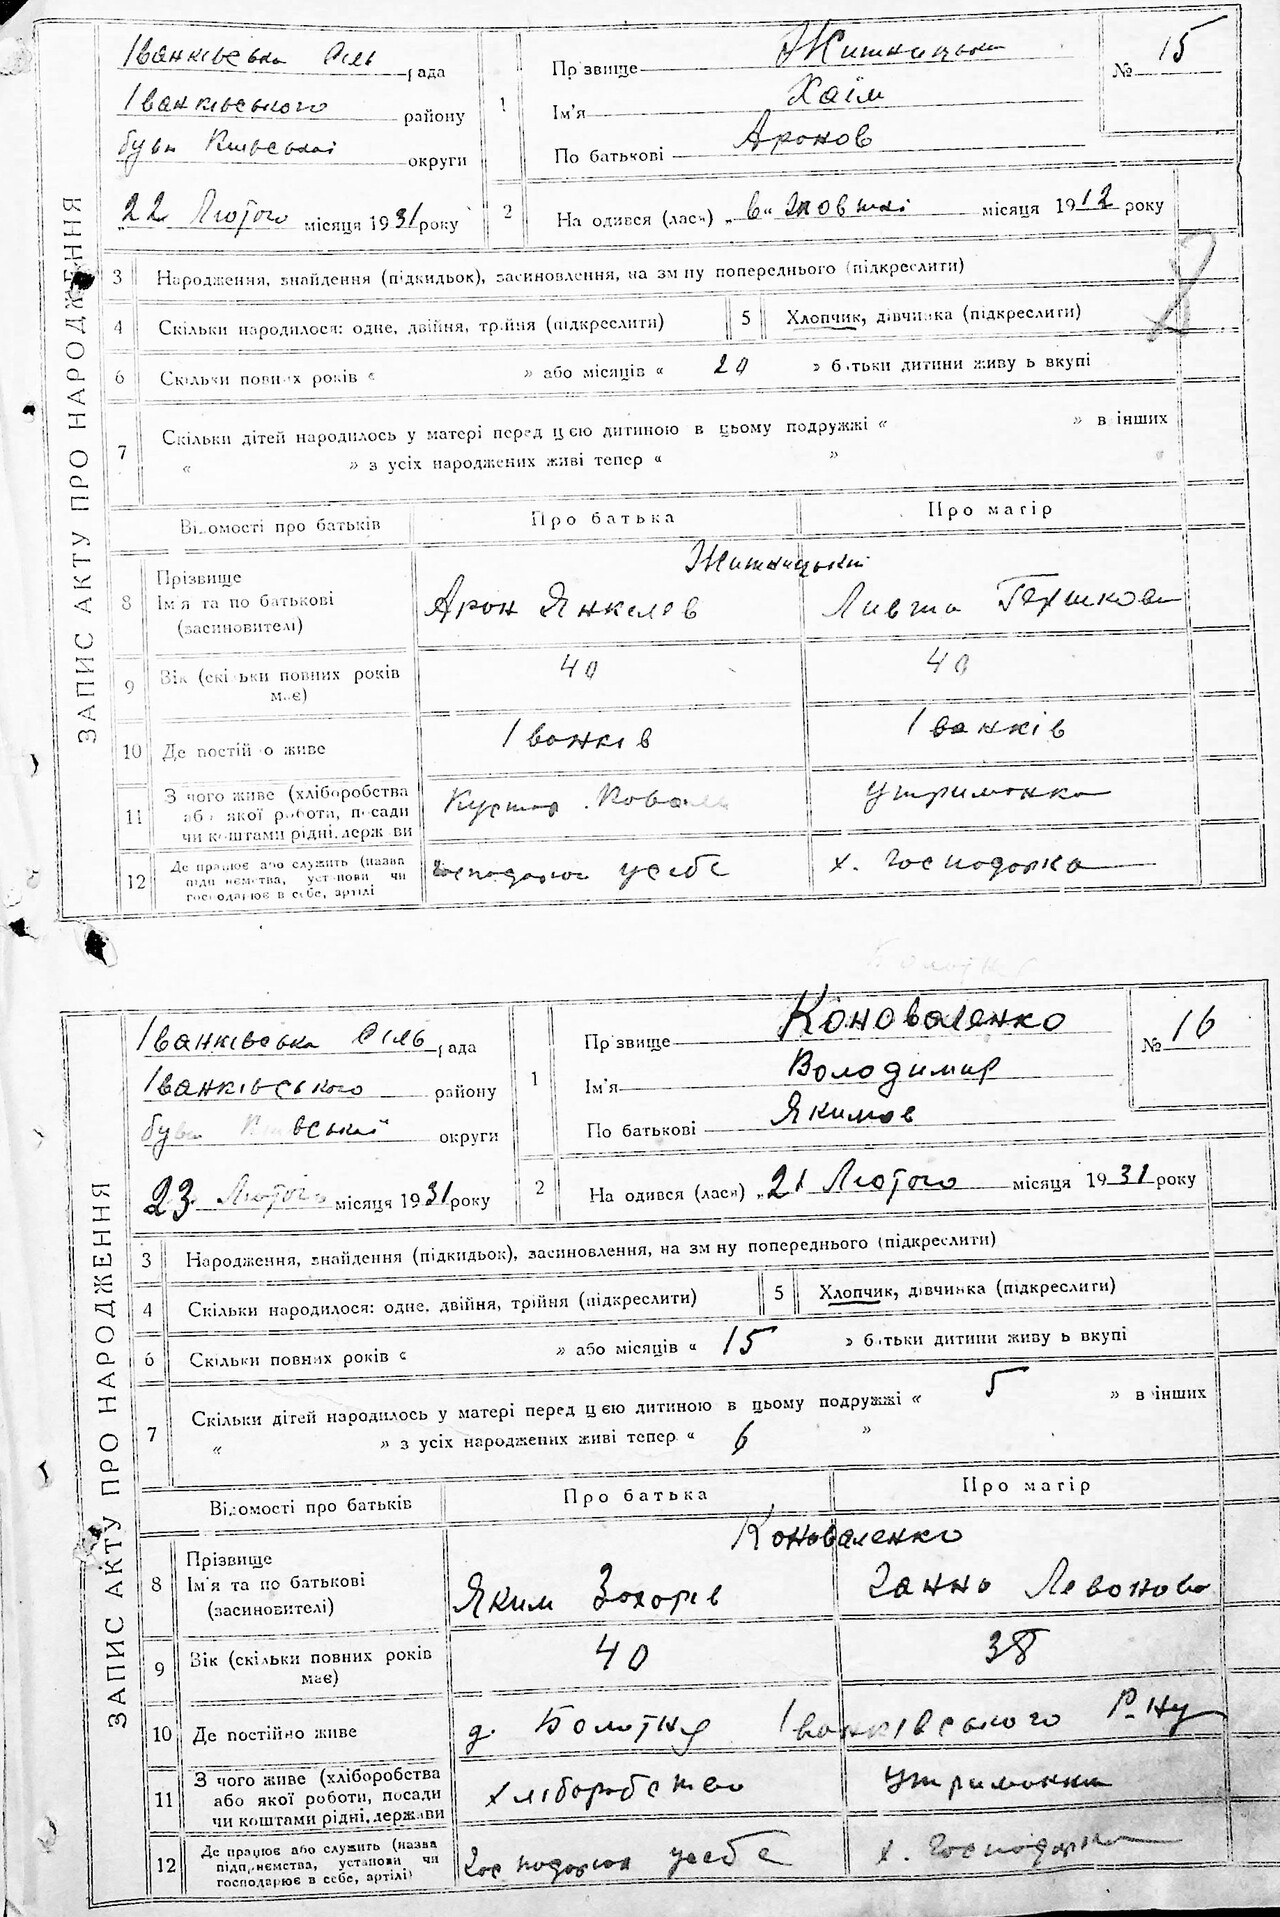 ЗАПИС АКТУ ПРО НАРОДЖЕННЯ
Іванківська сіль рада
Іванківського району
був. Київської округи
22 Лютого місяця 1931 року
1
Прізвище Житницький
Ім'я Хаїм
По батькові Аронов
№ 15
2
На одився (лась) „6“ жовтні місяця 1912 року
3 Народження, знайдення (підкидьок), засиновлення, на зм ну попереднього (підкреслити)
4 Скільки народилося: одне, двійня, трійня (підкреслити) 5 Хлопчик, дівчинка (підкреслити)
6 Скільки повних років « » або місяців « 20 » батьки дитини живу ь вкупі
7 Скільки дітей народилось у матері перед цією дитиною в цьому подружжі « » в інших
« » з усіх народжених живі тепер « » «
Відомості про батьків Про батька Про матір
Житницькі
8 Прізвище
Ім'я та по батькові
(засиновителі)
Арон Янкелев
9 Вік (скільки повних років має) 40 40
10 Де постійно живе Іванків Іванків
11 З чого живе (хліборобства
або якої роботи, посади
чи коштами рідні, держави
Кустар. Коваль утриманка
12 Де працює або служить (назва
підприємства, установи чи
господарює в себе, артілі
господарює у себе х. господарка
ЗАПИС АКТУ ПРО НАРОДЖЕННЯ
Іванківська сіль рада
Іванківського району
був. Київської округи
23 Лютого місяця 1931 року
1
Прізвище Коноваленко
Ім'я Володимир
По батькові Якимов
№ 16
2
На одився (лась) „21 Лютого місяця 1931 року
3 Народження, знайдення (підкидьок), засиновлення, на зм ну попереднього (підкреслити)
4 Скільки народилося: одне, двійня, трійня (підкреслити) 5 Хлопчик, дівчинка (підкреслити)
6 Скільки повних років « » або місяців « 15 » батьки дитини живу ь вкупі
7 Скільки дітей народилось у матері перед цією дитиною в цьому подружжі « 5 » в інших
« » з усіх народжених живі тепер « 6 »
Відомості про батьків Про батька Про матір
Коноваленко
8 Прізвище
Ім'я та по батькові
(засиновителі)
Яким Захарів Ганна Левонова
9 Вік (скільки повних років має) 40 38
10 Де постійно живе д. Болотня Іванківського Р-ну
11 З чого живе (хліборобства
або якої роботи, посади
чи коштами рідні, держави
Хліборобство утриманка
12 Де працює або служить (назва
підприємства, установи чи
господарює в себе, артілі)
Господарює у себе х. господарка